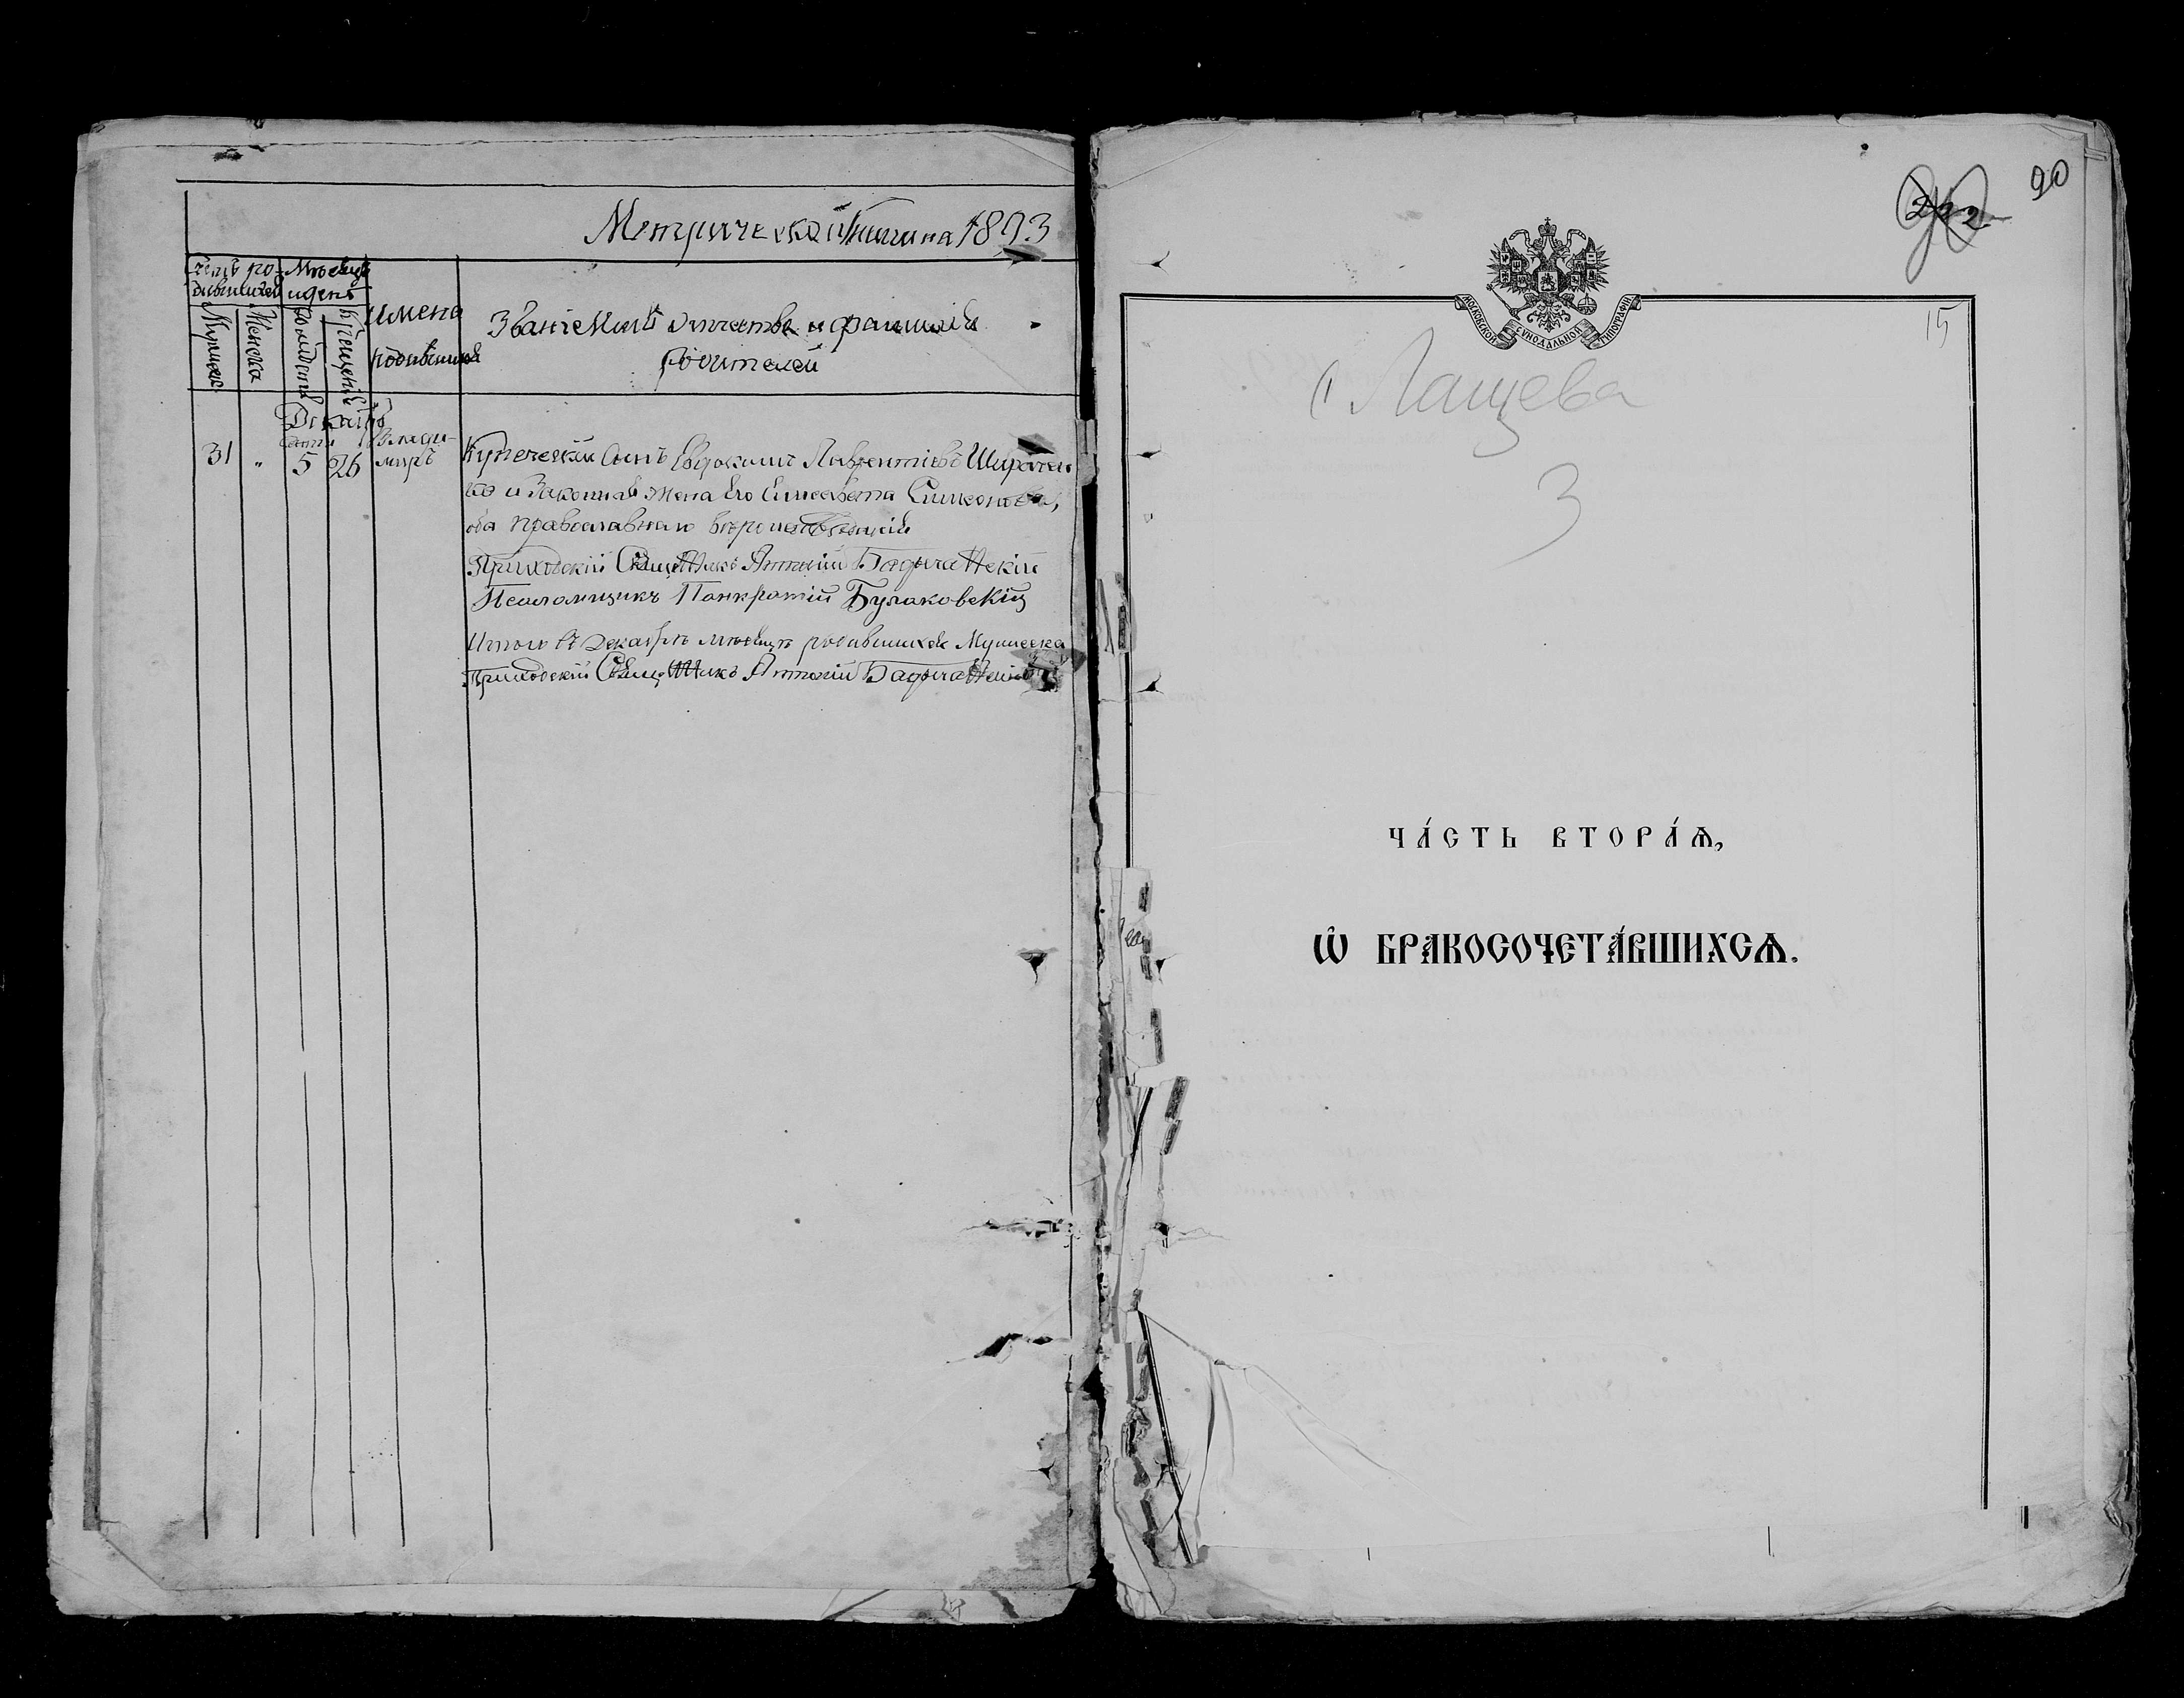 Метрической книги на 1893
Счетъ ро-
дившихся
Мѣсяцъ
и день
Мужеска
Женска
Рожденія
Крещенія
Имена
родившихся
Званіе Имя отчество и фамилія
родителей
Декабрь
31 " 5 26 Влади-
миръ
Купеческій Сынъ Евдокимъ Лаврентіевъ
и Законная жена Его Елисавета Симеонова,
оба православнаго вѣроисповѣданія
Приходскій Священникъ Антоній
Псаломщикъ Панкратій Булаковскій
Итого въ Декабрѣ мѣсяцѣ родившихся Мужеска
Приходскій Священникъ Антоній
90
222
15
МОСКОВСКОЙ СѴНОДАЛЬНОЙ ТИПОГРАФІИ
с Лащева
3
ЧА́СТЬ ВТОРА́Ѧ,
Ѽ БРАКОСОЧЕТА́ВШИХСѦ.